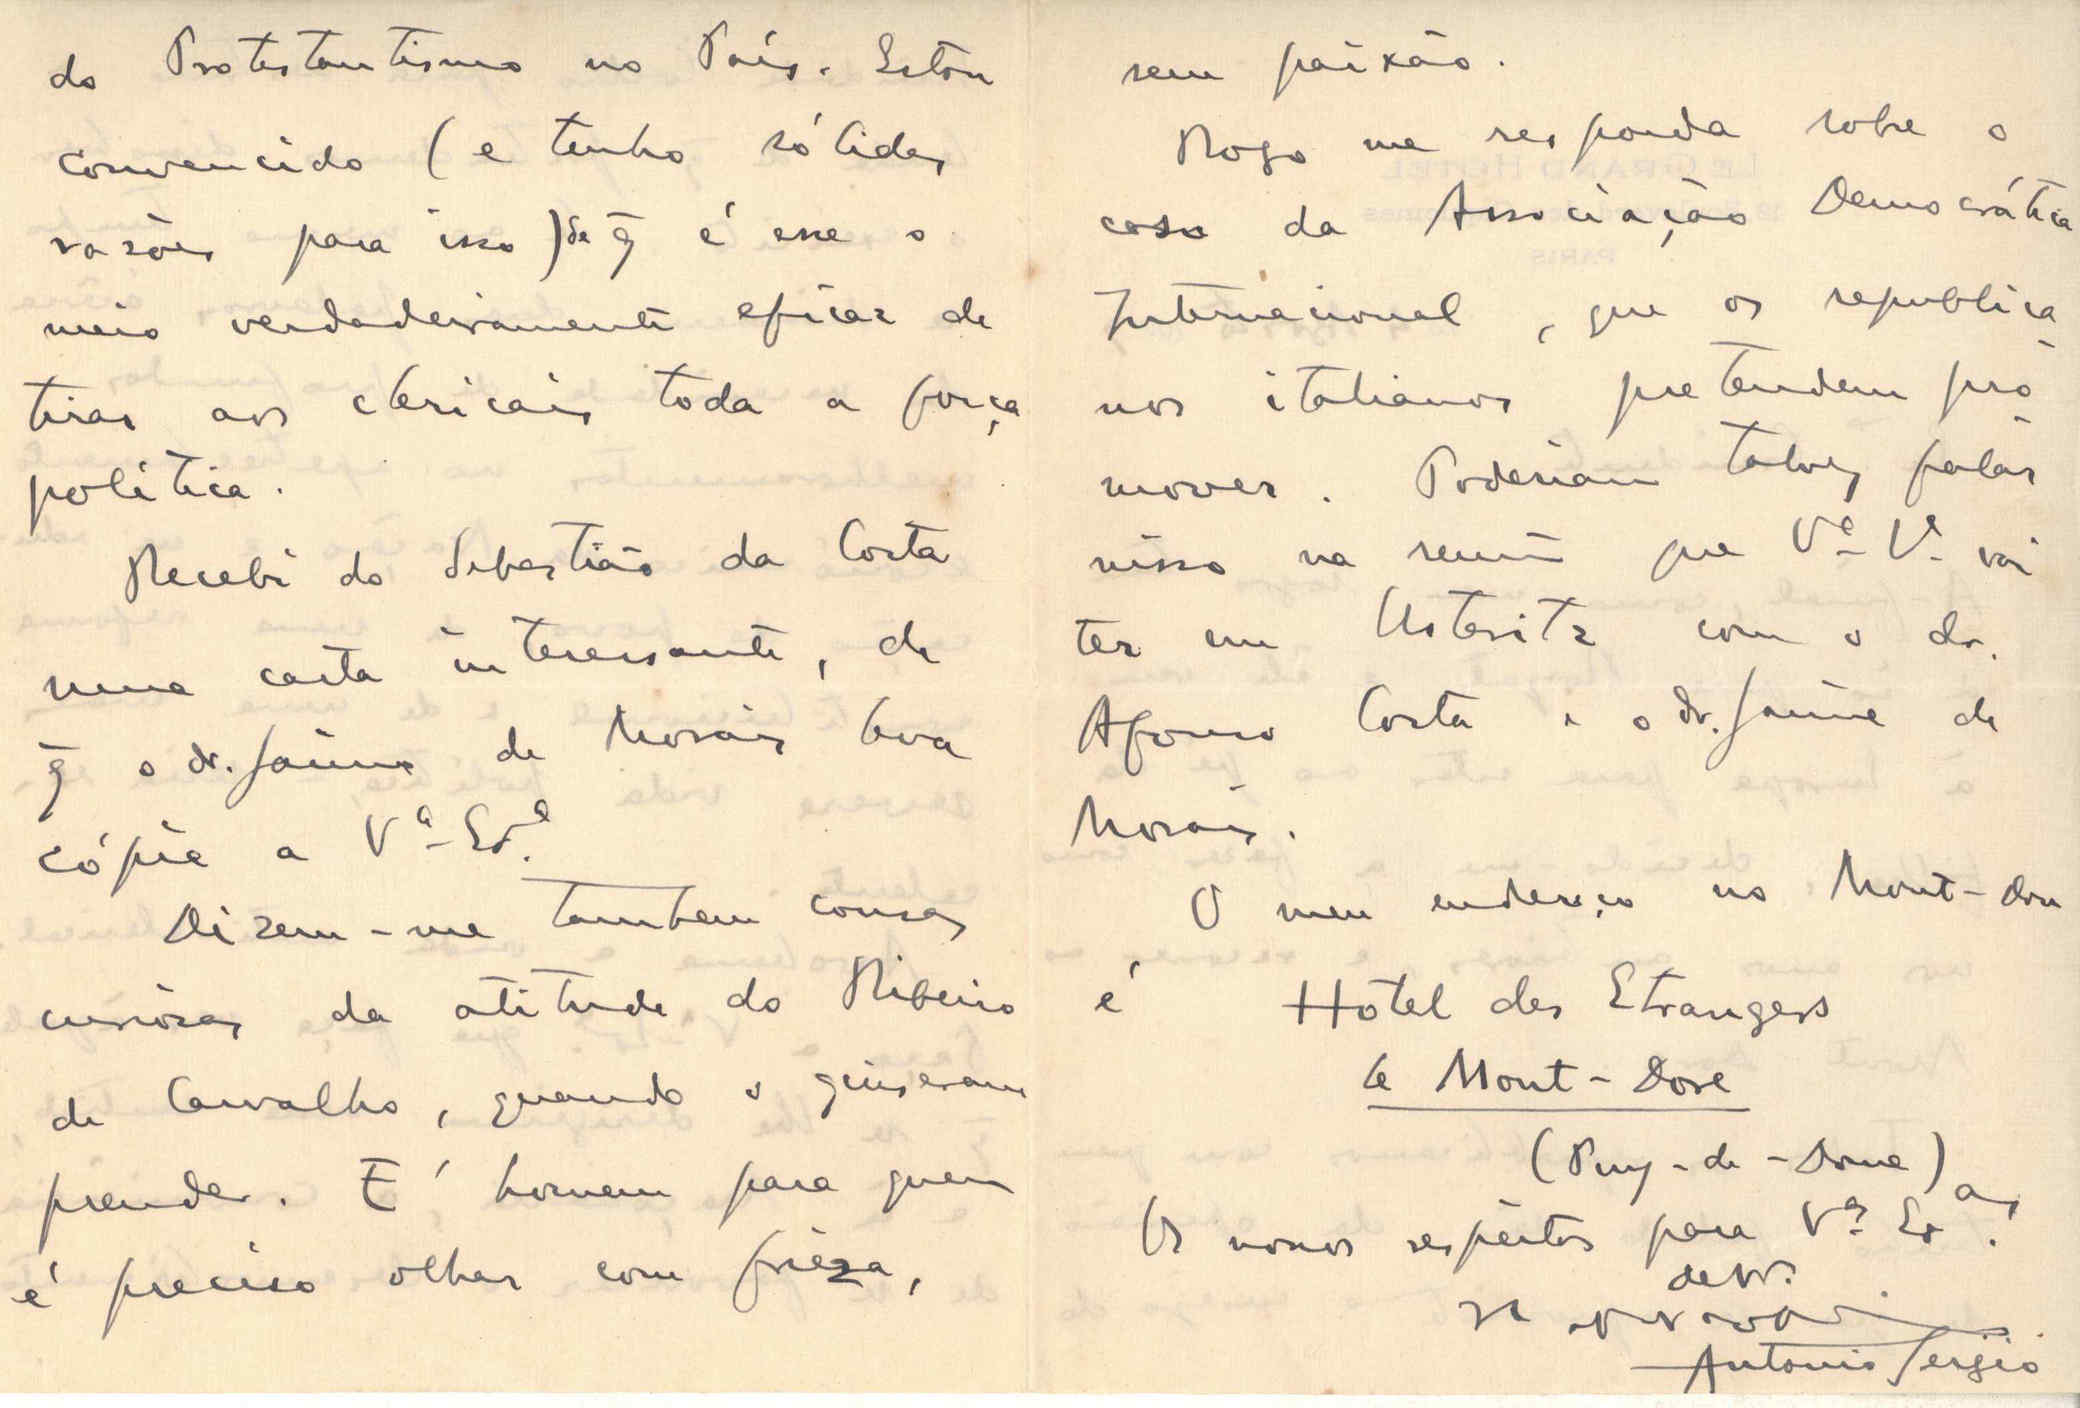 do Protestantismo no País. Estou
convencido (e tenho sólidas
razões para isso) de q̃ é esse o
meio verdadeiramente eficaz de
tirar aos clericais toda a força
política.
Recebi do Sebastião da Costa
uma carta interessante, de
q̃ o dr. Jaime de Morais leva
cópia a Vª Exª.
Dizem-me tambem cousas
curiosas da atitude do Ribeiro
de Carvalho, quando o quiseram
prender. É homem para quem
é preciso olhar com frieza,
sem paixão.
Rogo me responda sobre o
caso da Associação Democrática
Internacional, que os republica-
nos italianos pretendem pro-
mover. Poderiam talvez falar
nisso na reunião que Vª Vª vai
ter em com o dr.
Afonso Costa e o dr. Jaime de
Morais.
O meu endereço no Mont-Dore
é Hôtel des Etrangers
Le Mont-Dore
(Puy-de-Dome)
Os nossos respeitos para Vas Exas.
de W.
Antonio Sergio
LE GRAND HOTEL
PARIS